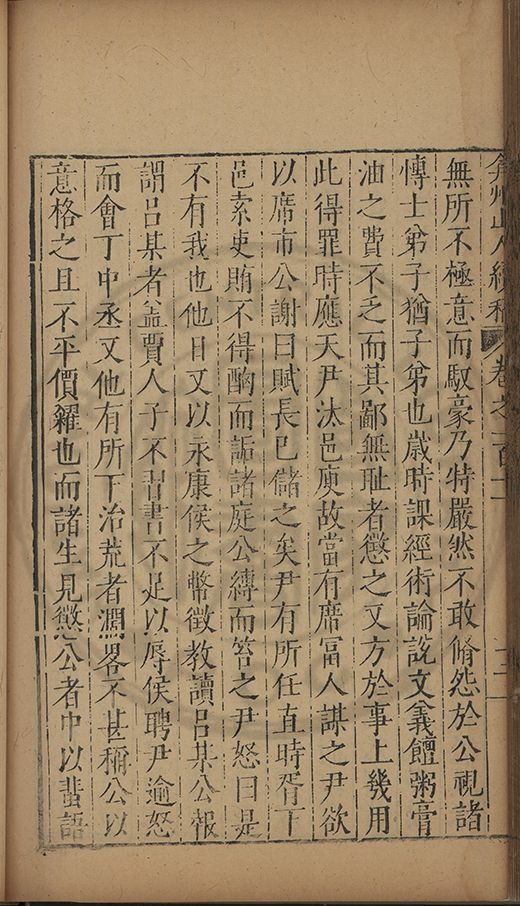 弇州山人續稿 卷之一百十二
無所不極意而馭豪乃特嚴然不敢脩怨於公視諸
愽士弟子猶子弟也歲時課經術論說文義饘粥膏
油之費不乏而其鄙無耻者懲之又方於事上幾用
此得罪時應天尹汰邑庾故當有席冨人謀之尹欲
以席市公謝曰賦長已儲之矣尹有所任直時胥下
邑索吏賄不得酗而詬諸庭公縛而笞之尹怒曰是
不有我也他日又以永康侯之幣徵教讀呂某公報
謂呂某者葢賈人子不習書不足以辱侯聘尹逾怒
而會丁中丞又他有所下治荒者濶畧不甚稱公以
意格之且不平價糴也而諸生見懲公者中以蜚語